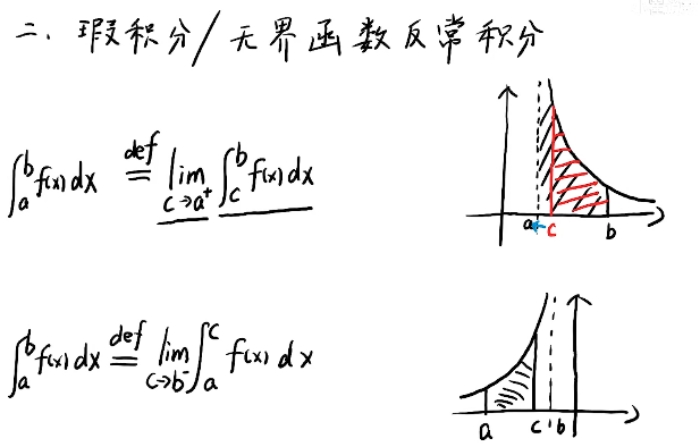 二、瑕积分/无界函数反常积分
∫_a^b f(x) dx \overset{def}{=} lim_{c→a⁺} ∫_c^b f(x) dx
a c b
∫_a^b f(x) dx \overset{def}{=} lim_{c→b⁻} ∫_a^c f(x) dx
a c b